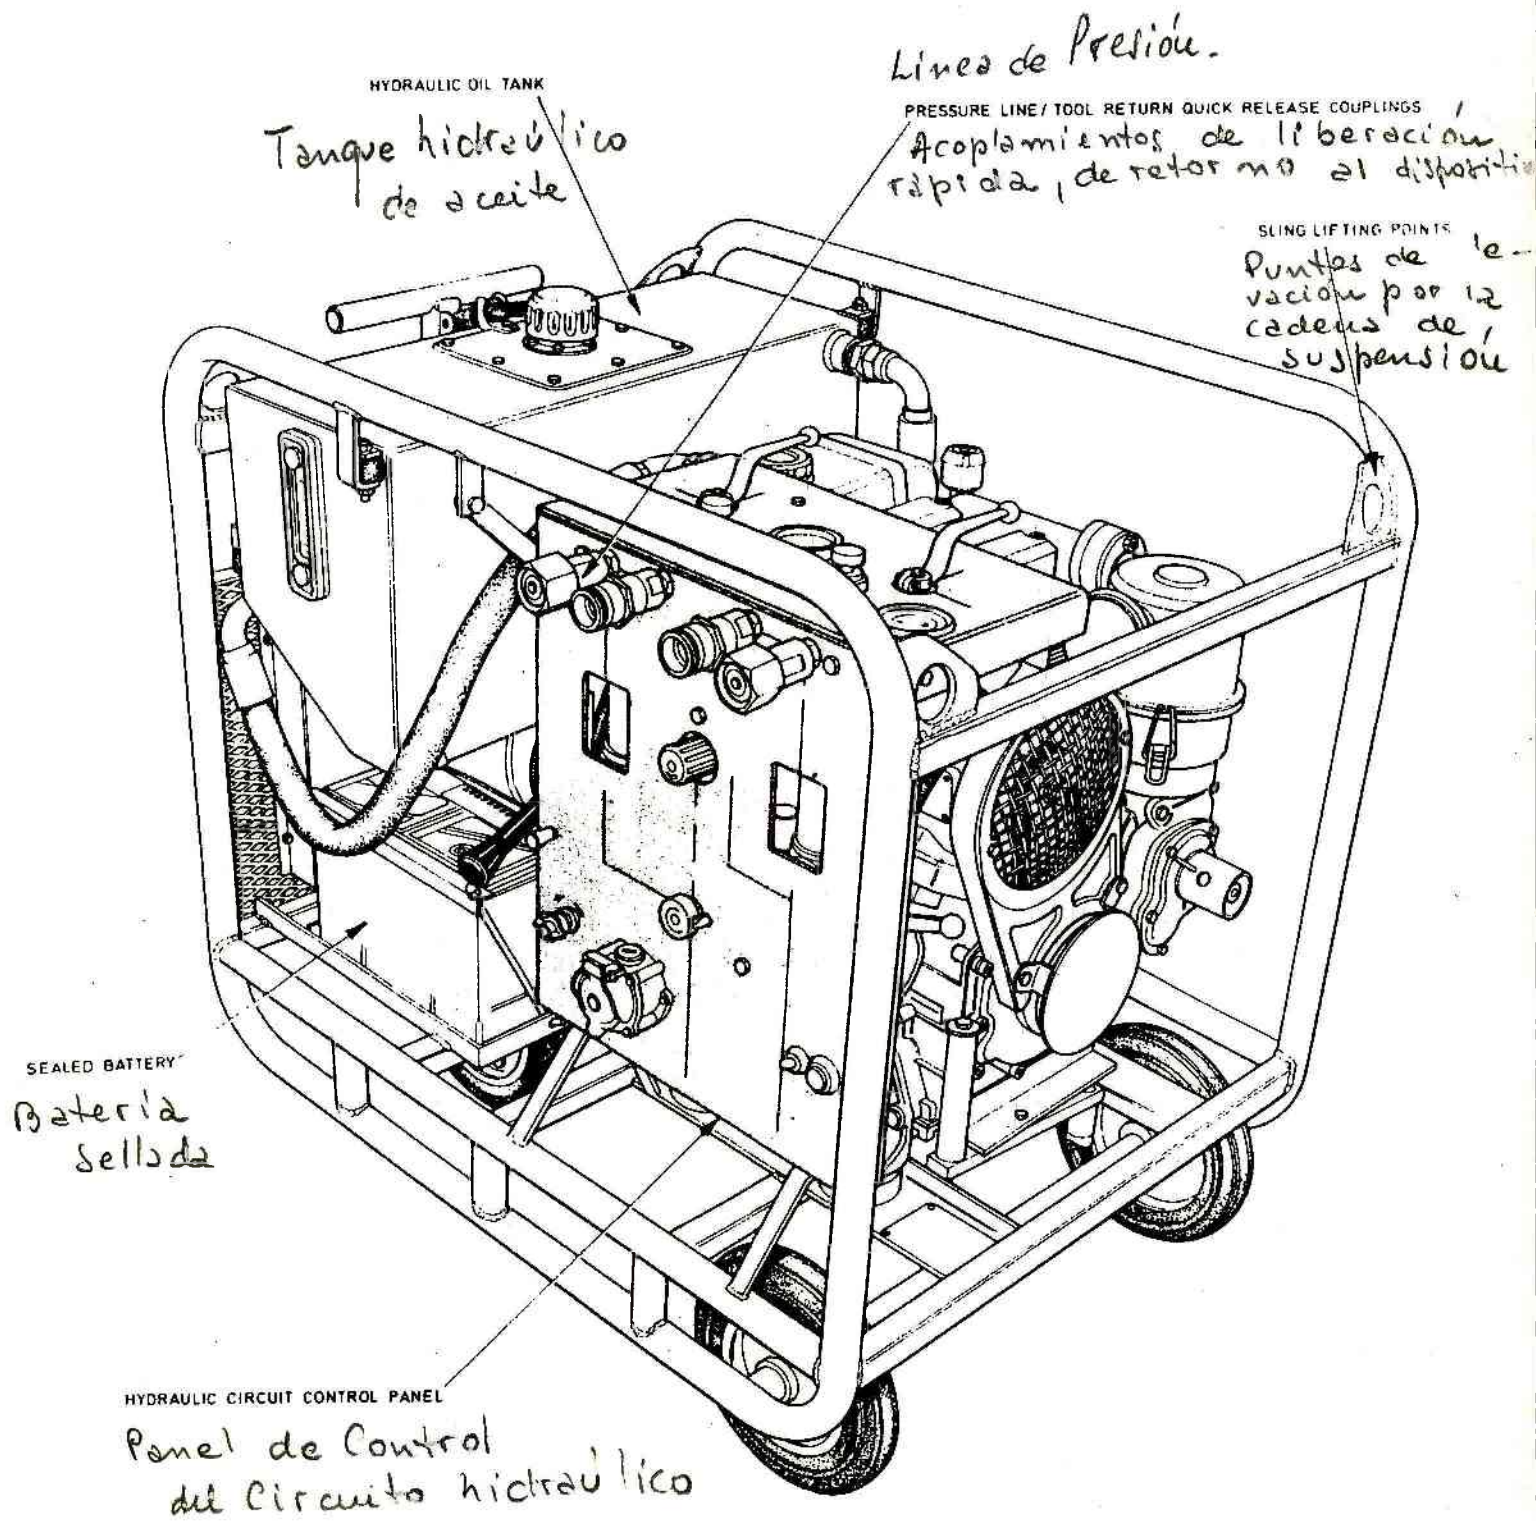 Linea de Presión.
HYDRAULIC OIL TANK
Tanque hidraúlico
de aceite
PRESSURE LINE/TOOL RETURN QUICK RELEASE COUPLINGS
Acoplamientos de liberación
rápida, de retorno al
SLING LIFTING POINTS
Puntos de le-
vación por la
cadena de
suspensión
SEALED BATTERY
Batería
Sellada
HYDRAULIC CIRCUIT CONTROL PANEL
Panel de Control
del Circuito hidraúlico